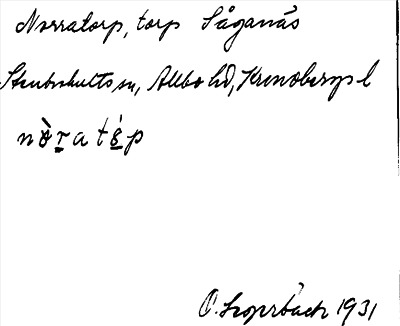 Norratorp, torp Såganäs
Stenbrohults sn, Allbo hd, Kronobergs l
nòr̲a té̲p
1931